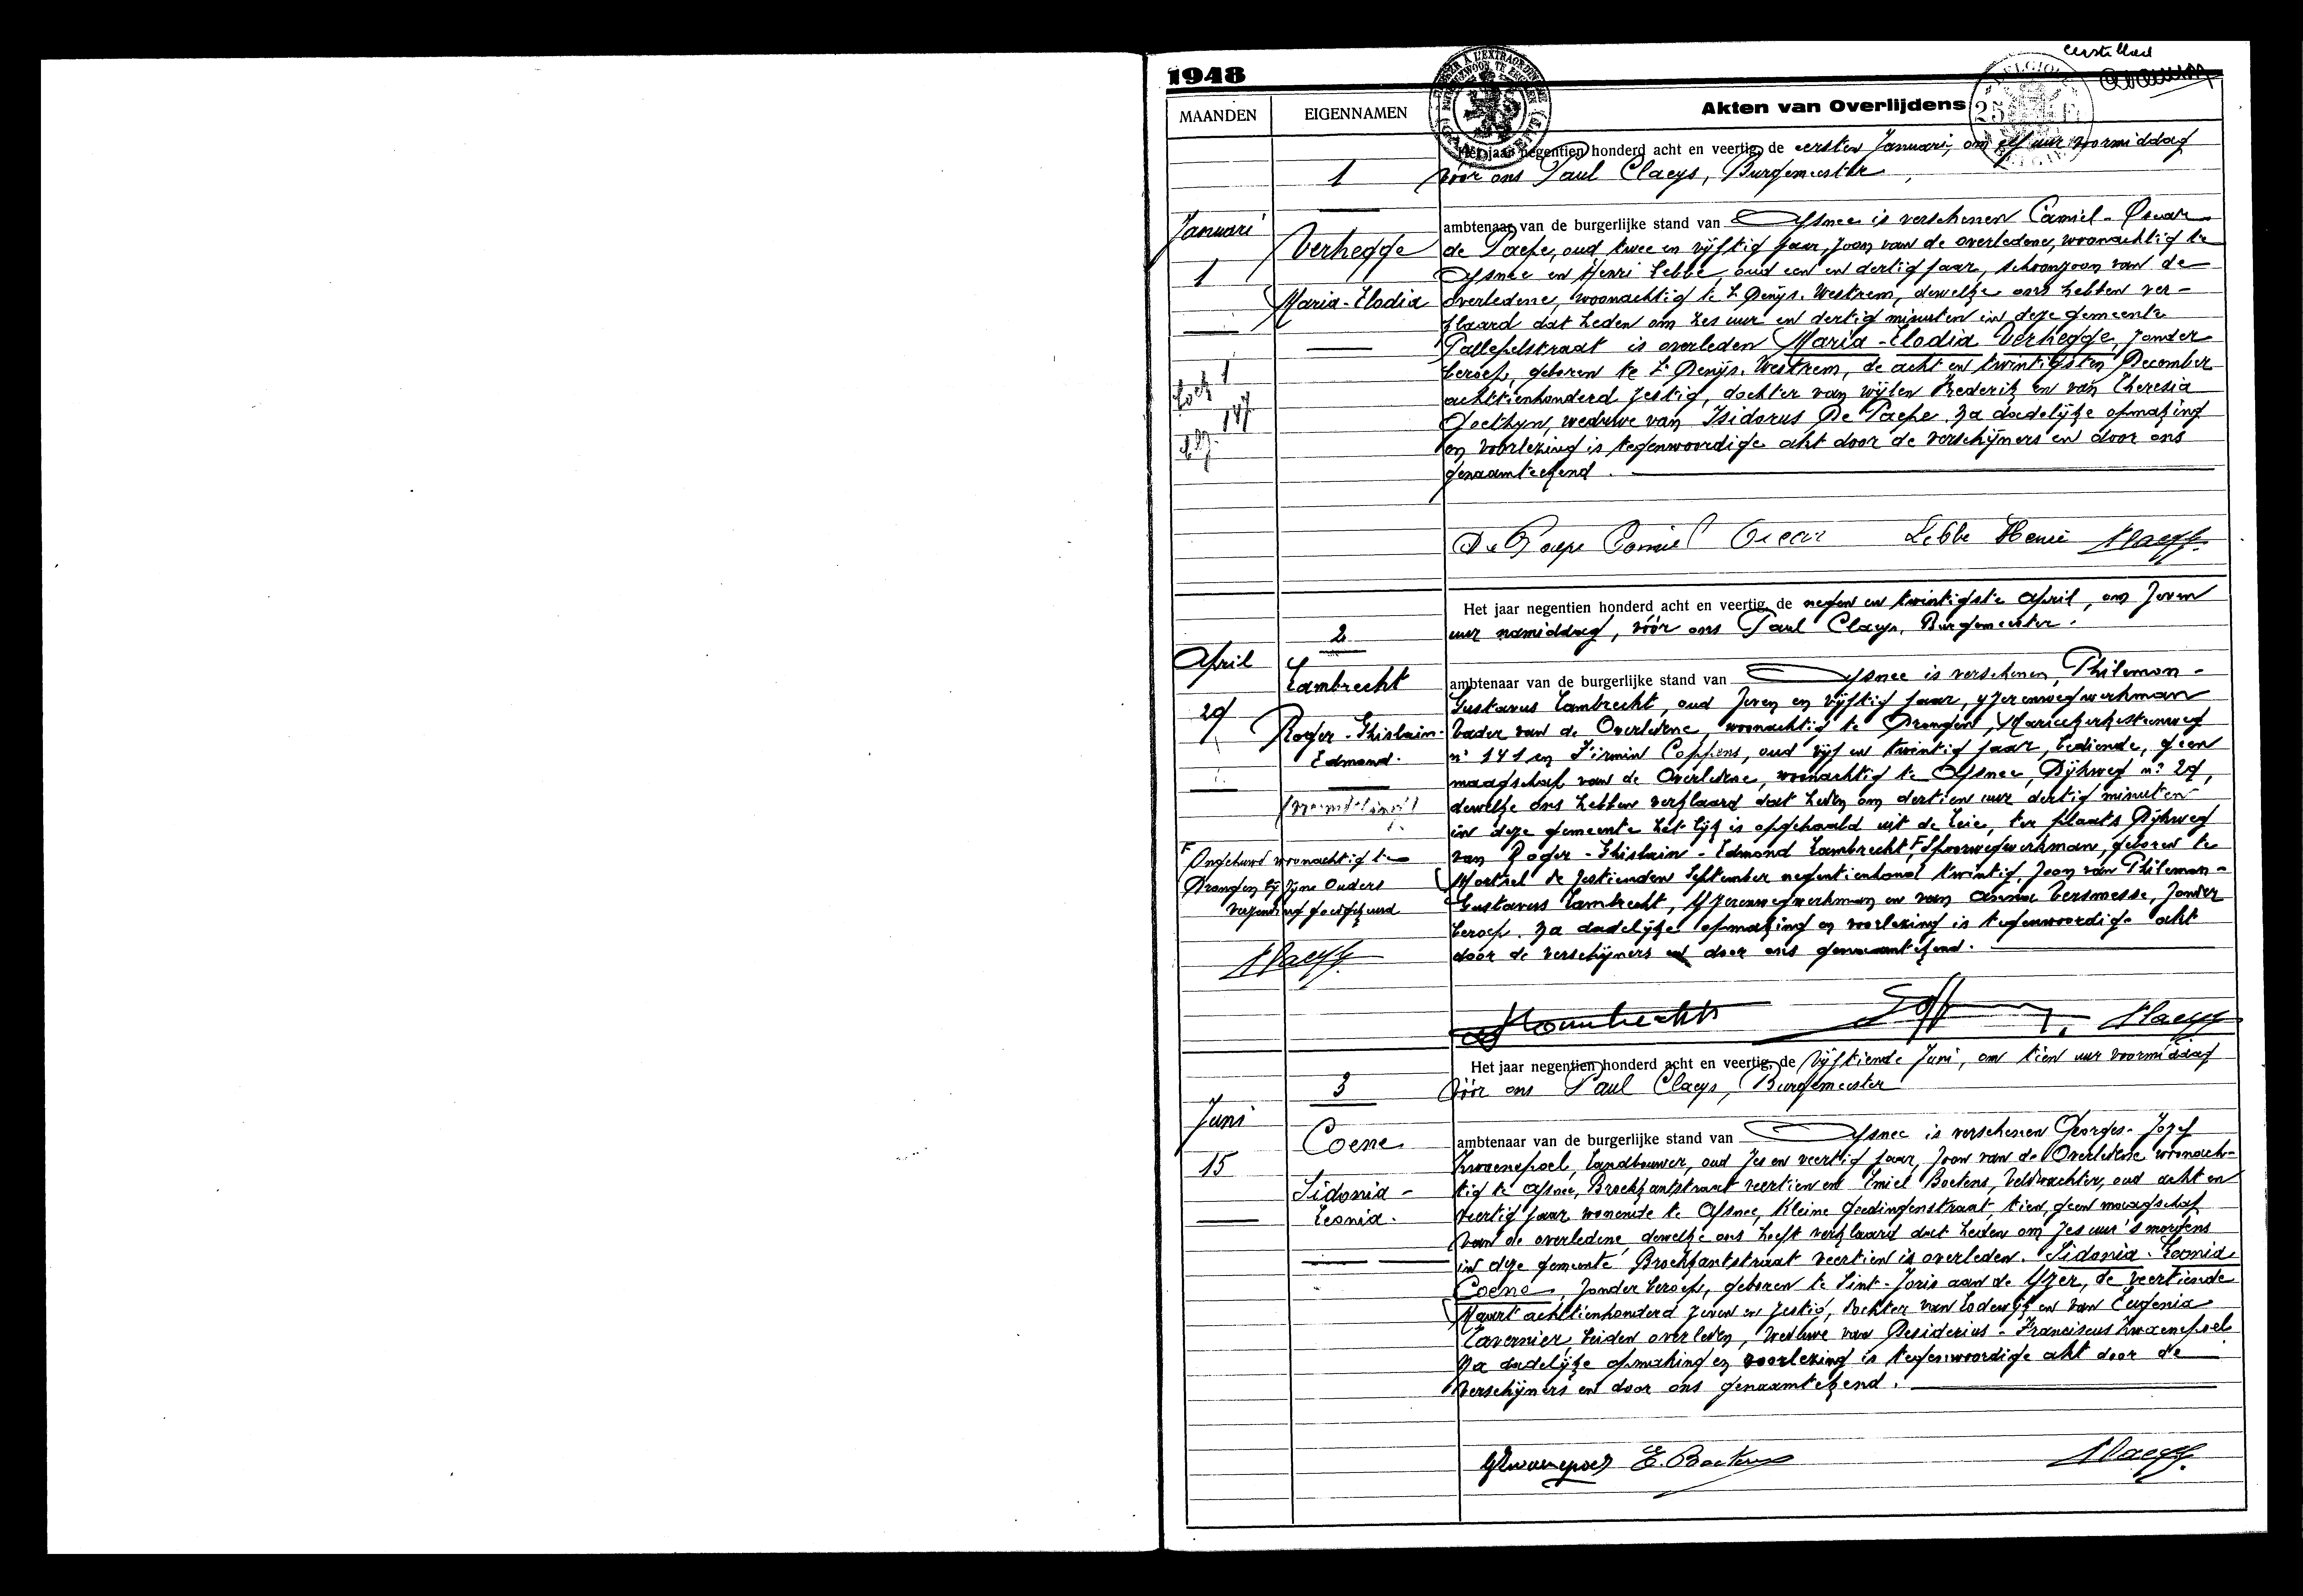 eerste blad
1948
MAANDEN
EIGENNAMEN
Akten van Overlijdens
Het jaar negentien honderd acht en veertig, de eersten Januari, om elf uur voormiddag
vóór ons Paul Claeys, Burgemeester
1
Januari
1
Verhegge
Maria-Elodia
1
147
ambtenaar van de burgerlijke stand van Afsnee is verschenen Camiel-Oscar
de Paepe, oud twee en vijftig jaar, zoon van de overledene, woonachtig te
Afsnee en Henri Lebbe, oud een en dertig jaar, schoonzoon van de
overledene, woonachtig te St Denijs-Westrem, dewelke ons hebben ver-
klaard dat heden om zes uur en dertig minuten in deze gemeente
Pallepelstraat is overleden Maria-Elodia Verhegge, zonder
beroep, geboren te St Denijs-Westrem, de acht en twintigsten December
achttienhonderd zestig, dochter van wijlen Frederik en van Theresia
Goethyn, weduwe van Isidorus De Paepe. Na dadelijke opmaking
en voorlezing is tegenwoordige akt door de verschijners en door ons
genaamteekend.
De Paepe Camiel Oscar Lebbe Henri Claeys
Het jaar negentien honderd acht en veertig, de negen en twintigste April, om zeven
uur namiddag, vóór ons Paul Claeys, Burgemeester.
2
April
29
Lambrecht
Roger-Ghislain-
Edmond.
ambtenaar van de burgerlijke stand van Afsnee is verschenen Philemon-
Gustavus Lambrecht, oud zeven en vijftig jaar, yzerenwegwerkman
Vader van de Overledene, woonachtig te Drongen, Mariakerkesteenweg
n° 141 en Firmin Coppens, oud vijf en twintig jaar, bediende, geen
maagschap van de Overledene, woonachtig te Afsnee, Dijkweg n° 27,
dewelke ons hebben verklaard dat heden om dertien uur dertig minuten
in deze gemeente het lijk is opgehaald uit de Leie, ter plaats Dijkweg
van Roger-Ghislain-Edmond Lambrecht, F Spoorwegwerkman, geboren te
Moetsel de zestienden September negentienhond twintig, zoon van Philemon-
Gustavus Lambrecht, Yzerenwegwerkman en van Anna Versmesse, zonder
beroep. Na dadelijke opmaking en voorlezing is tegenwoordige akt
door de verschijners en door ons genaamtekend.
F Ongehuwd woonachtig te
Drongen bij zijne Ouders
verzending goedgekeurd
Claeys
Lambrecht Claeys
Het jaar negentien honderd acht en veertig, de Vijftiende Juni, om tien uur voormiddag
vóór ons Paul Claeys, Burgemeester
3
Juni
15
Coene
Sidonia-
Leonia.
ambtenaar van de burgerlijke stand van Afsnee is verschenen Georges-Jozef
Zwaenepoel, Landbouwer, oud zes en veertig jaar, zoon van de Overledene woonach-
tig te Afsnee, Broekkantstraat veertien en Emiel Boetens, Veldwachter, oud acht en
veertig jaar wonende te Afsnee, Kleine Goedingenstraat, tien, geen maagschap
van de overledene, dewelke ons heeft verklaard dat heden om zes uur 's morgens
in deze gemeente Broekkantstraat veertien is overleden. Sidonia-Leonia
Coene, zonder beroep, geboren te Sint-Joris aan de Yzer, de veertiende
Maart achttienhonderd zeven en zestig, dochter van Lodewijk en van Eugenia
Tavernier, beiden overleden, weduwe van Desiderius-Franciscus Zwaenepoel
Na dadelijke opmaking en voorlezing is tegenwoordige akt door de
verschijners en door ons genaamtekend.
GZwaenepoel E. Boetens Claeys